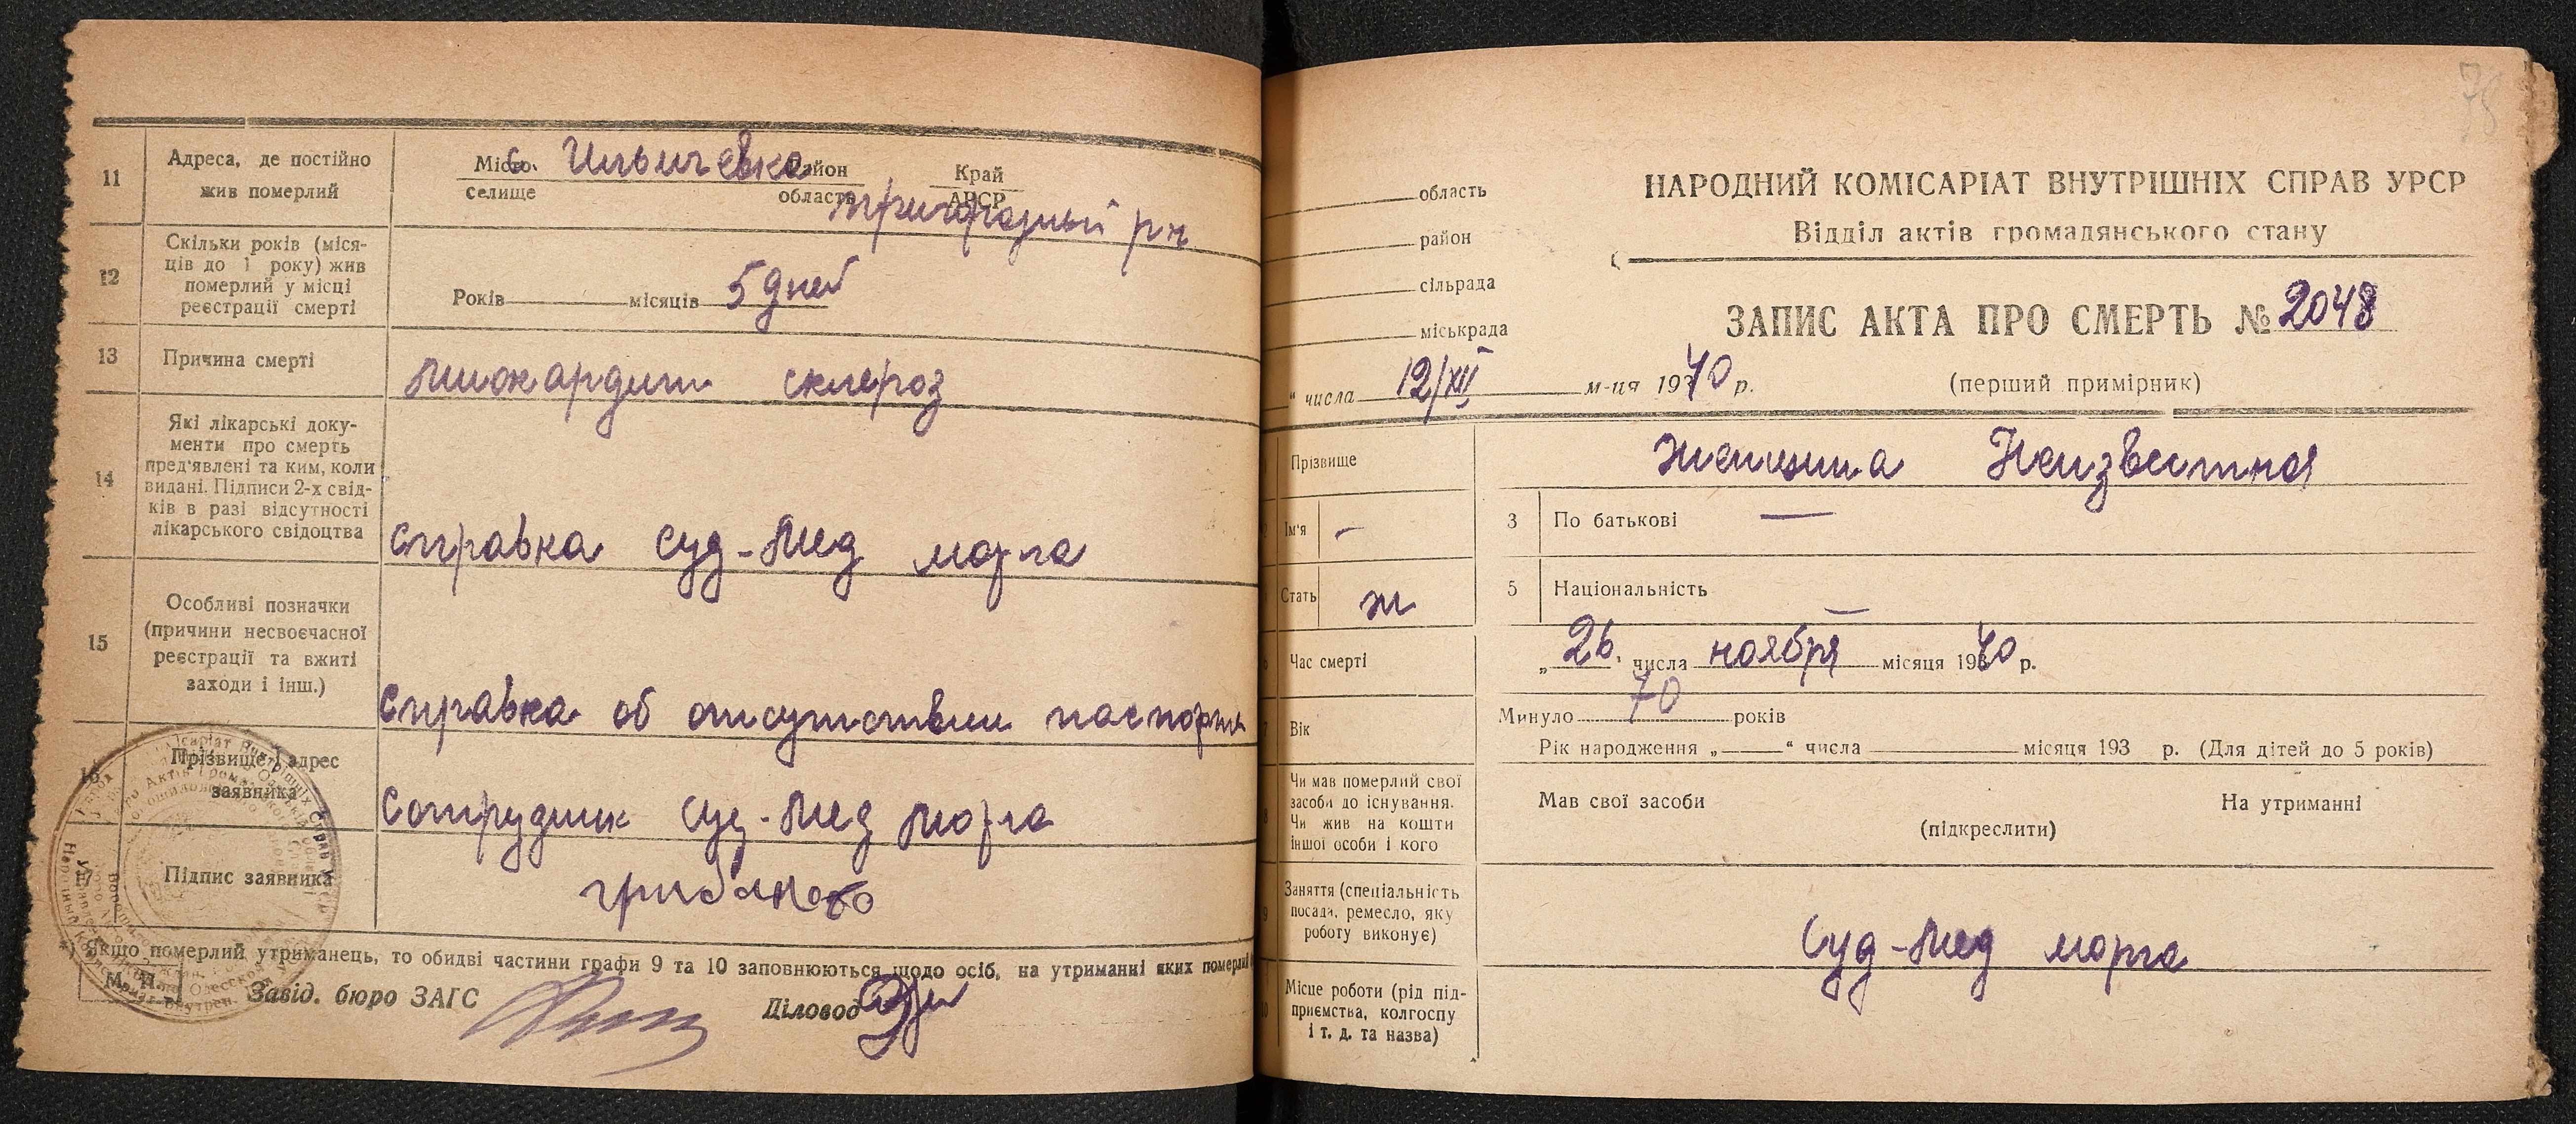 11
Адреса, де постійно
жив померлий
Місто
с. Ильичевка
Район
Край
селище
область
АРСР
пригородный р-н
12
Скільки років (міся-
ців до 1 року) жив
померлий у місці
реєстрації смерті
Років
місяців 5 дней
13
Причина смерті
Миокардит склероз
14
Які лікарські доку-
менти про смерть
пред'явлені та ким, коли
видані. Підписи 2-х свід-
ків в разі відсутності
лікарського свідоцтва
Справка суд-мед морга
15
Особливі позначки
(причини несвоєчасної
реєстрації та вжиті
заходи і інш.)
Справка об отсутствии паспорта
16
Прізвище і адрес
заявника
Сотрудник суд-мед морга
17
Підпис заявника
грибаново
*) Якщо померлий утриманець, то обидві частини графи 9 та 10 заповнюються щодо осіб, на утриманні яких померлі
М. П.
Завід. бюро ЗАГС
Діловод
78
область
район
сільрада
міськрада
НАРОДНИЙ КОМІСАРІАТ ВНУТРІШНІХ СПРАВ УРСР
Відділ актів громадянського стану
ЗАПИС АКТА ПРО СМЕРТЬ № 2048
(перший примірник)
" числа 12/XII м-ця 1940 р.
Прізвище
Женщина Неизвестная
Ім'я –
3 По батькові —
Стать ж
5 Національність —
Час смерті
„ 26. числа ноября місяця 1940 р.
Вік
Минуло 70 років
Рік народження „ “ числа місяця 193 р. (Для дітей до 5 років)
8
Чи мав померлий свої
засоби до існування.
Чи жив на кошти
іншої особи і кого
Мав свої засоби
На утриманні
(підкреслити)
9
Заняття (спеціальність
посада, ремесло, яку
роботу виконує)
Суд-мед морга
10
Місце роботи (рід під-
приємства, колгоспу
і т. д. та назва)